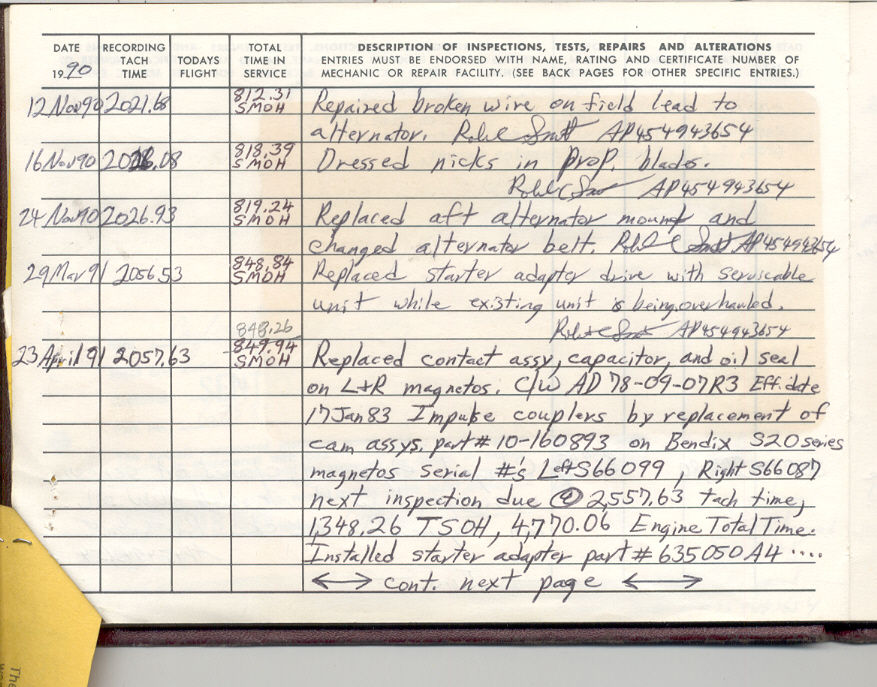 DATE RECORDING TODAYS TOTAL DESCRIPTION OF INSPECTIONS, TESTS, REPAIRS AND ALTERATIONS
TACH FLIGHT TIME IN ENTRIES MUST BE ENDORSED WITH NAME, RATING AND CERTIFICATE NUMBER OF
1990 TIME SERVICE MECHANIC OR REPAIR FACILITY. (SEE BACK PAGES FOR OTHER SPECIFIC ENTRIES.)
12 Nov 90 2021.68 812.31 SMOH Repaired broken wire on field lead to
alternator. AP454943654
16 Nov 90 818.39 SMOH Dressed nicks in prop. blades.
AP454943654
24 Nov 90 2026.93 819.24 SMOH Replaced aft alternator mount and
changed alternator belt. AP454943654
29 Mar 91 2056.53 848.84 SMOH Replaced starter adapter drive with servicable
unit while existing unit is being overhauled.
848.26 AP454943654
23 April 91 2057.63 849.94 SMOH Replaced contact assy, capacitor, and oil seal
on L+R magnetos. C/W AD 78-09-07R3 Eff. date
17 Jan 83 Impulse couplers by replacement of
cam assys. part # 10-160893 on Bendix S20 series
magnetos serial #'s Left S66099, Right S66087
next inspection due @ 2,557.63 tach time,
1,348.26 TSOH, 4,770.06 Engine Total Time.
Installed starter adapter part # 635050A4 ....
<--> cont. next page <-->